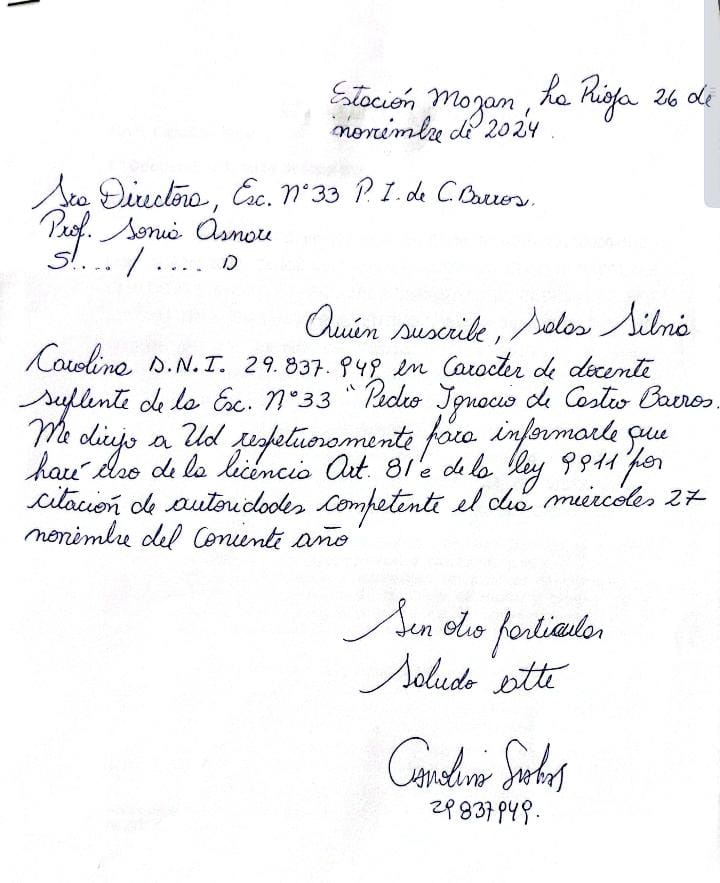 Estación Mozan, La Rioja 26 de
noviembre de 2024.
Sra Directora, Esc. N°33 P. I. de C. Barros.
Prof. Sonia
S.... / .... D
Quién suscribe, Salas Silvia
Carolina D.N.I. 29.837.949 en Caracter de docente
suplente de la Esc. N°33 "Pedro Ignacio de Castro Barros.
Me dirijo a Ud respetuosamente para informarle que
haré uso de la licencia Art. 81 e de la ley 9911 por
citación de autoridades competente el dia miércoles 27
noviembre del corriente año
Sin otro particular
Saludo atte
Carolina Salas
29837949.